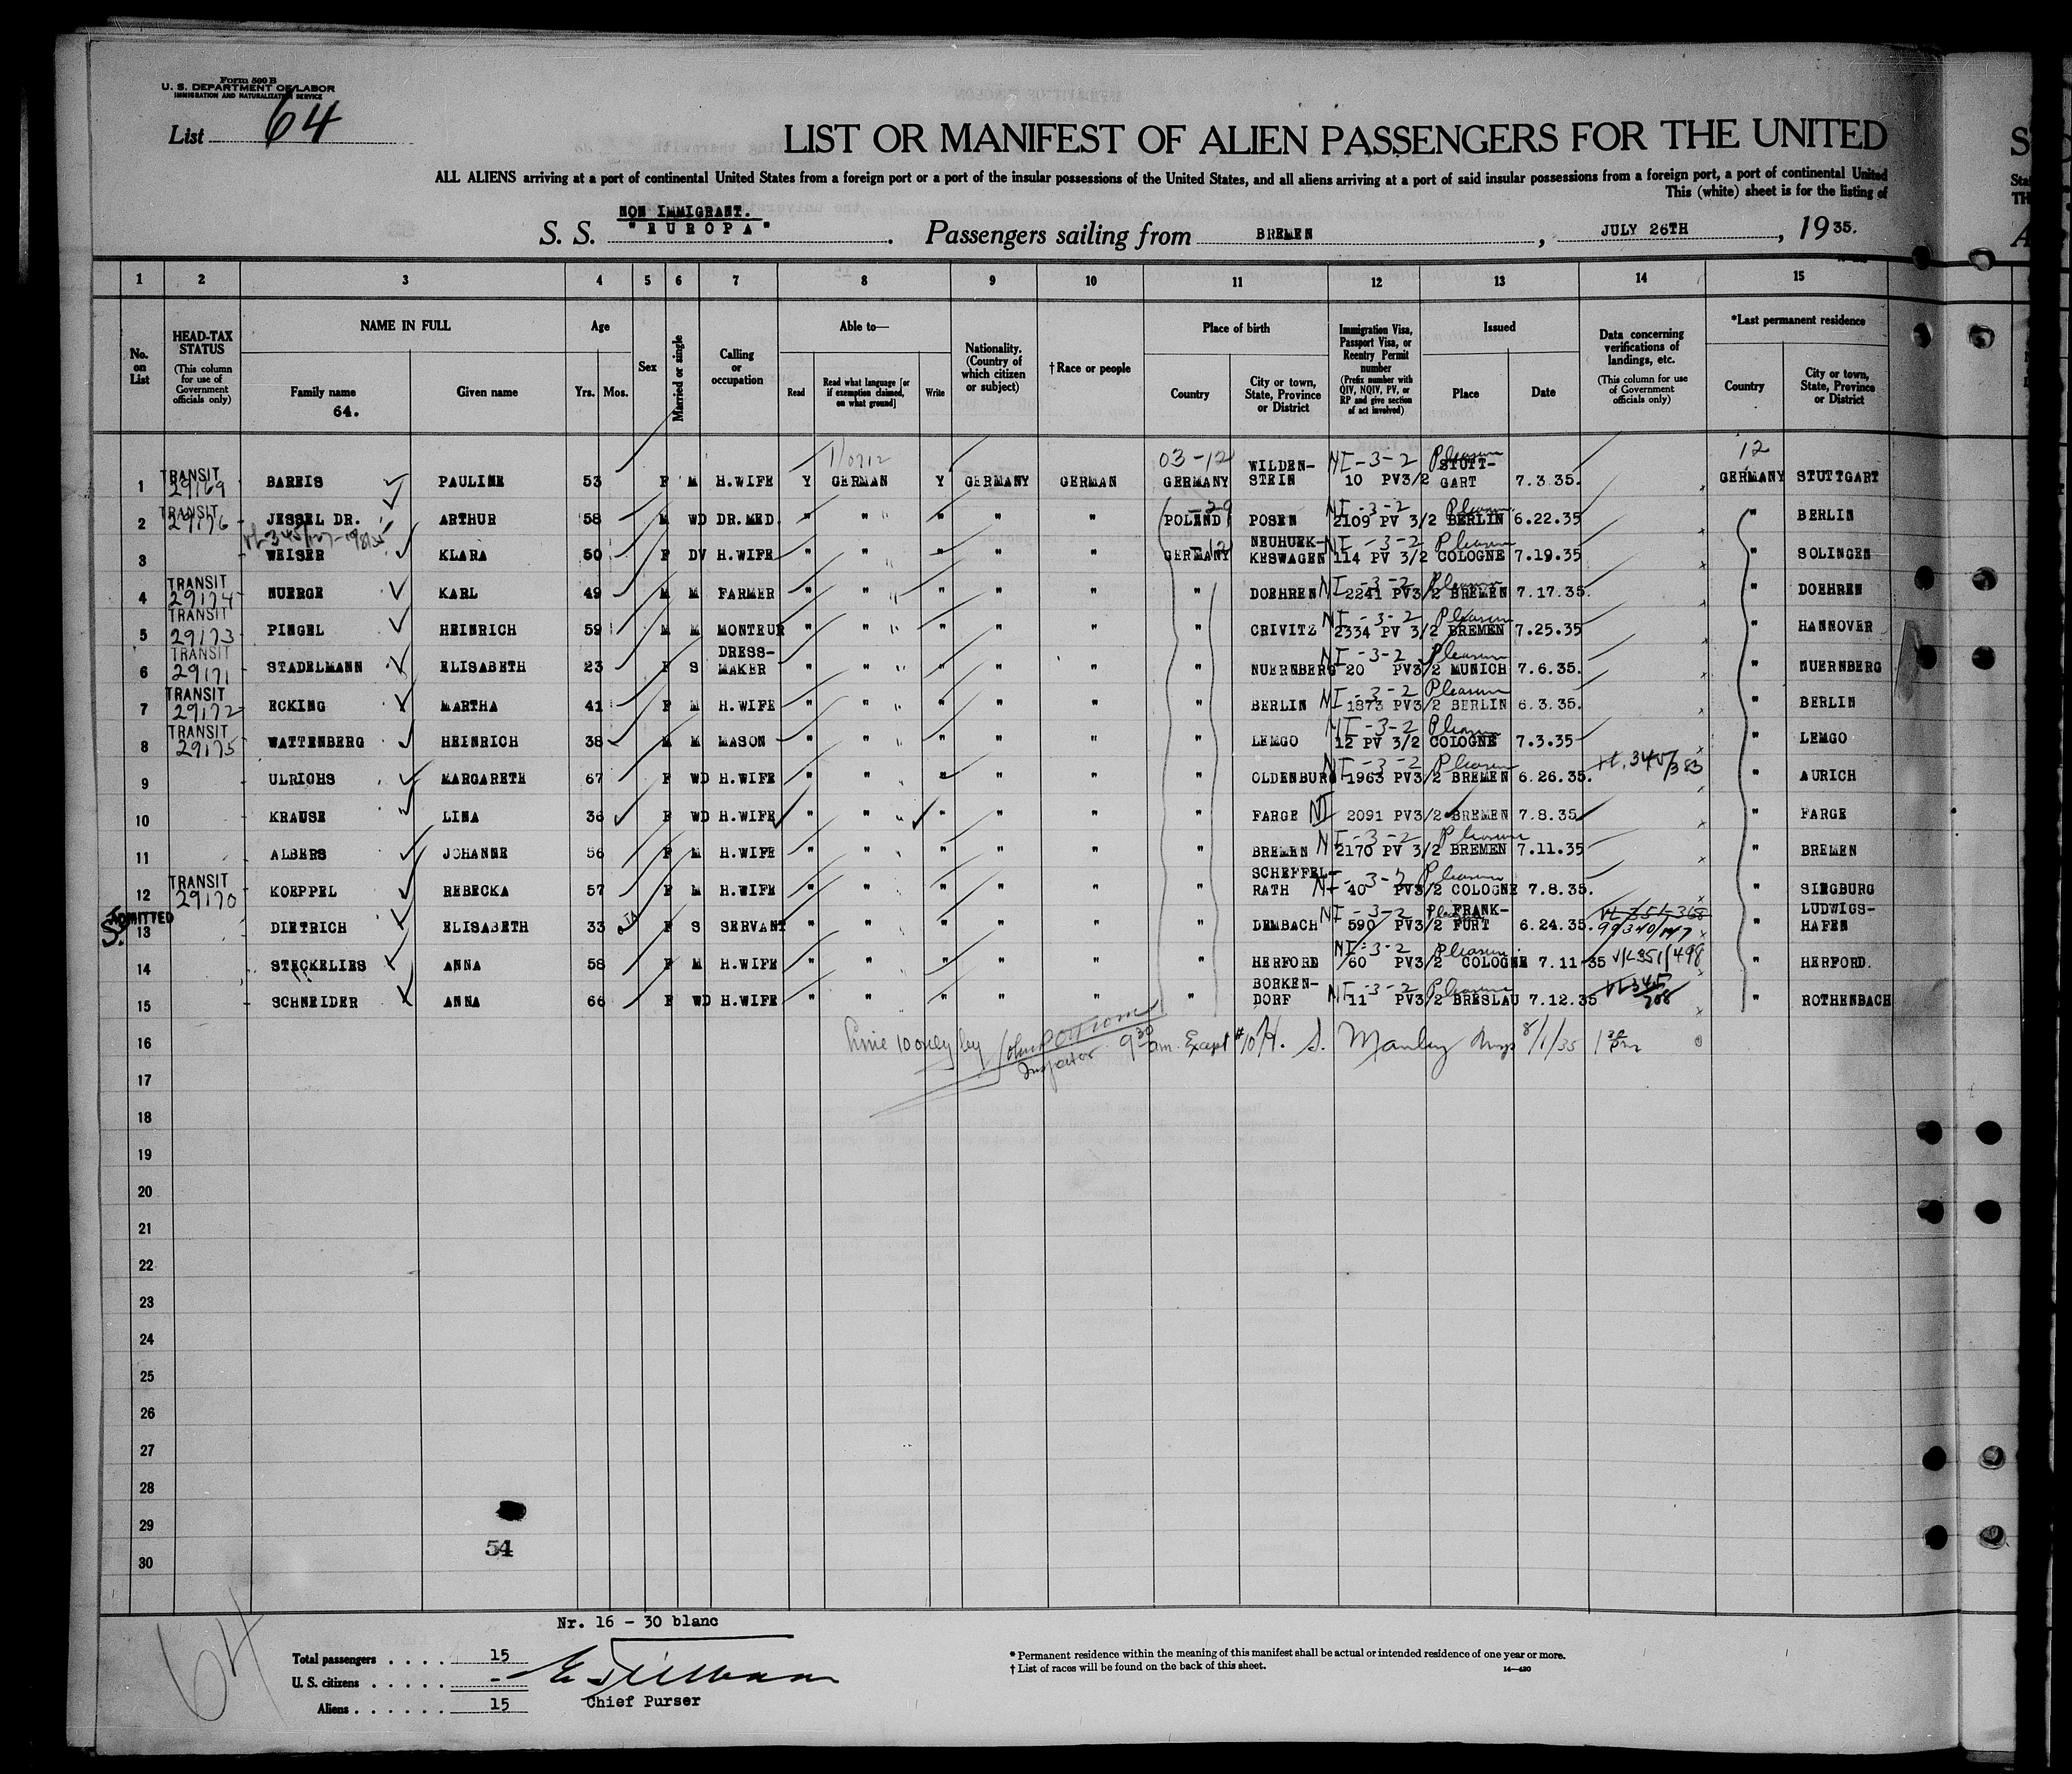 Form 500 B
U. S. DEPARTMENT OF LABOR
IMMIGRATION AND NATURALIZATION SERVICE
List 64
LIST OR MANIFEST OF ALIEN PASSENGERS FOR THE UNITED
ALL ALIENS arriving at a port of continental United States from a foreign port or a port of the insular possessions of the United States, and all aliens arriving at a port of said insular possessions from a foreign port, a port of continental United
This (white) sheet is for the listing of
NON IMMIGRANT.
S. S. "EUROPA". Passengers sailing from BREMEN, JULY 26TH, 1935.
1 2 3 4 5 6 7 8 9 10 11 12 13 14 15
No. on List
HEAD-TAX STATUS (This column for use of Government officials only)
NAME IN FULL
Family name 64.
Given name
Age
Yrs. Mos.
Sex
Married or single
Calling or occupation
Able to—
Read
Read what language [or if exemption claimed, on what ground]
Write
Nationality. (Country of which citizen or subject)
† Race or people
Place of birth
Country
City or town, State, Province or District
Immigration Visa, Passport Visa, or Reentry Permit number (Prefix number with QIV, NQIV, PV, or RP and give section of act involved)
Issued
Place
Date
Data concerning verifications of landings, etc. (This column for use of Government officials only)
*Last permanent residence
Country
City or town, State, Province or District
03-12 NI-3-2 Pleasure 12
1 TRANSIT 29169 BAREIS PAULINE 53 F M H.WIFE Y GERMAN Y GERMANY GERMAN GERMANY WILDEN-STEIN 10 PV3/2 STUTT-GART 7.3.35. GERMANY STUTTGART
2 TRANSIT 29176 JESSEL DR. ARTHUR 58 M WD DR.MED. " " " " " POLAND -29 POSEN NI-3-2 2109 PV 3/2 Pleasure BERLIN 6.22.35 " BERLIN
3 WEISER KLARA 50 F DV H.WIFE " " " " " GERMANY -12 NEUHUEK-KESWAGEN NI-3-2 114 PV 3/2 Pleasure COLOGNE 7.19.35 " SOLINGEN
4 TRANSIT 29174 NUERGE KARL 49 M M FARMER " " " " " " DOEHREN NI-3-2 2241 PV3/2 Pleasure BREMEN 7.17.35. " DOEHREN
5 TRANSIT 29173 PINGEL HEINRICH 59 M M MONTEUR " " " " " " CRIVITZ NI-3-2 2334 PV 3/2 Pleasure BREMEN 7.25.35 " HANNOVER
6 TRANSIT 29171 STADELMANN ELISABETH 23 F S DRESS-MAKER " " " " " " NUERNBERG NI-3-2 20 PV3/2 Pleasure MUNICH 7.6.35. " NUERNBERG
7 TRANSIT 29172 ECKING MARTHA 41 F M H.WIFE " " " " " " BERLIN NI-3-2 1873 PV3/2 Pleasure BERLIN 6.3.35. " BERLIN
8 TRANSIT 29175 WATTENBERG HEINRICH 38 M M MASON " " " " " " LEMGO NI-3-2 12 PV 3/2 Pleasure COLOGNE 7.3.35 " LEMGO
9 ULRICHS MARGARETH 67 F WD H.WIFE " " " " " " OLDENBURG NI-3-2 1963 PV3/2 Pleasure BREMEN 6.26.35. " AURICH
10 KRAUSE LINA 36 F WD H.WIFE " " " " " " FARGE NI 2091 PV3/2 BREMEN 7.8.35 " FARGE
11 ALBERS JOHANNE 56 F M H.WIFE " " " " " " BREMEN NI-3-2 2170 PV 3/2 Pleasure BREMEN 7.11.35 " BREMEN
12 TRANSIT 29170 KOEPPEL REBECKA 57 F M H.WIFE " " " " " " SCHEFFEL-RATH NI-3-2 40 PV3/2 Pleasure COLOGNE 7.8.35. " SIEGBURG
ADMITTED
13 DIETRICH ELISABETH 33 F S SERVANT " " " " " " DEMBACH NI-3-2 590 PV3/2 FRANK-FURT 6.24.35. 99/340/147 " LUDWIGS-HAFEN
14 STECKELIES ANNA 58 F M H.WIFE " " " " " " HERFORD NI-3-2 60 PV3/2 Pleasure COLOGNE 7.11-35 VL351/498 " HERFORD.
15 SCHNEIDER ANNA 66 F WD H.WIFE " " " " " " BORKEN-DORF NI-3-2 11 PV3/2 Pleasure BRESLAU 7.12.35 " ROTHENBACH
16 Line 10 only by Inspector 9 30 am. Except #10 H. S. Manley Insp 8/1/35 1 30 pm
17
18
19
20
21
22
23
24
25
26
27
28
29
54
30
Nr. 16 - 30 blanc
64
Total passengers . . . . 15
U. S. citizens . . . . . -
Aliens . . . . . . 15
Chief Purser
* Permanent residence within the meaning of this manifest shall be actual or intended residence of one year or more.
† List of races will be found on the back of this sheet.
14—420